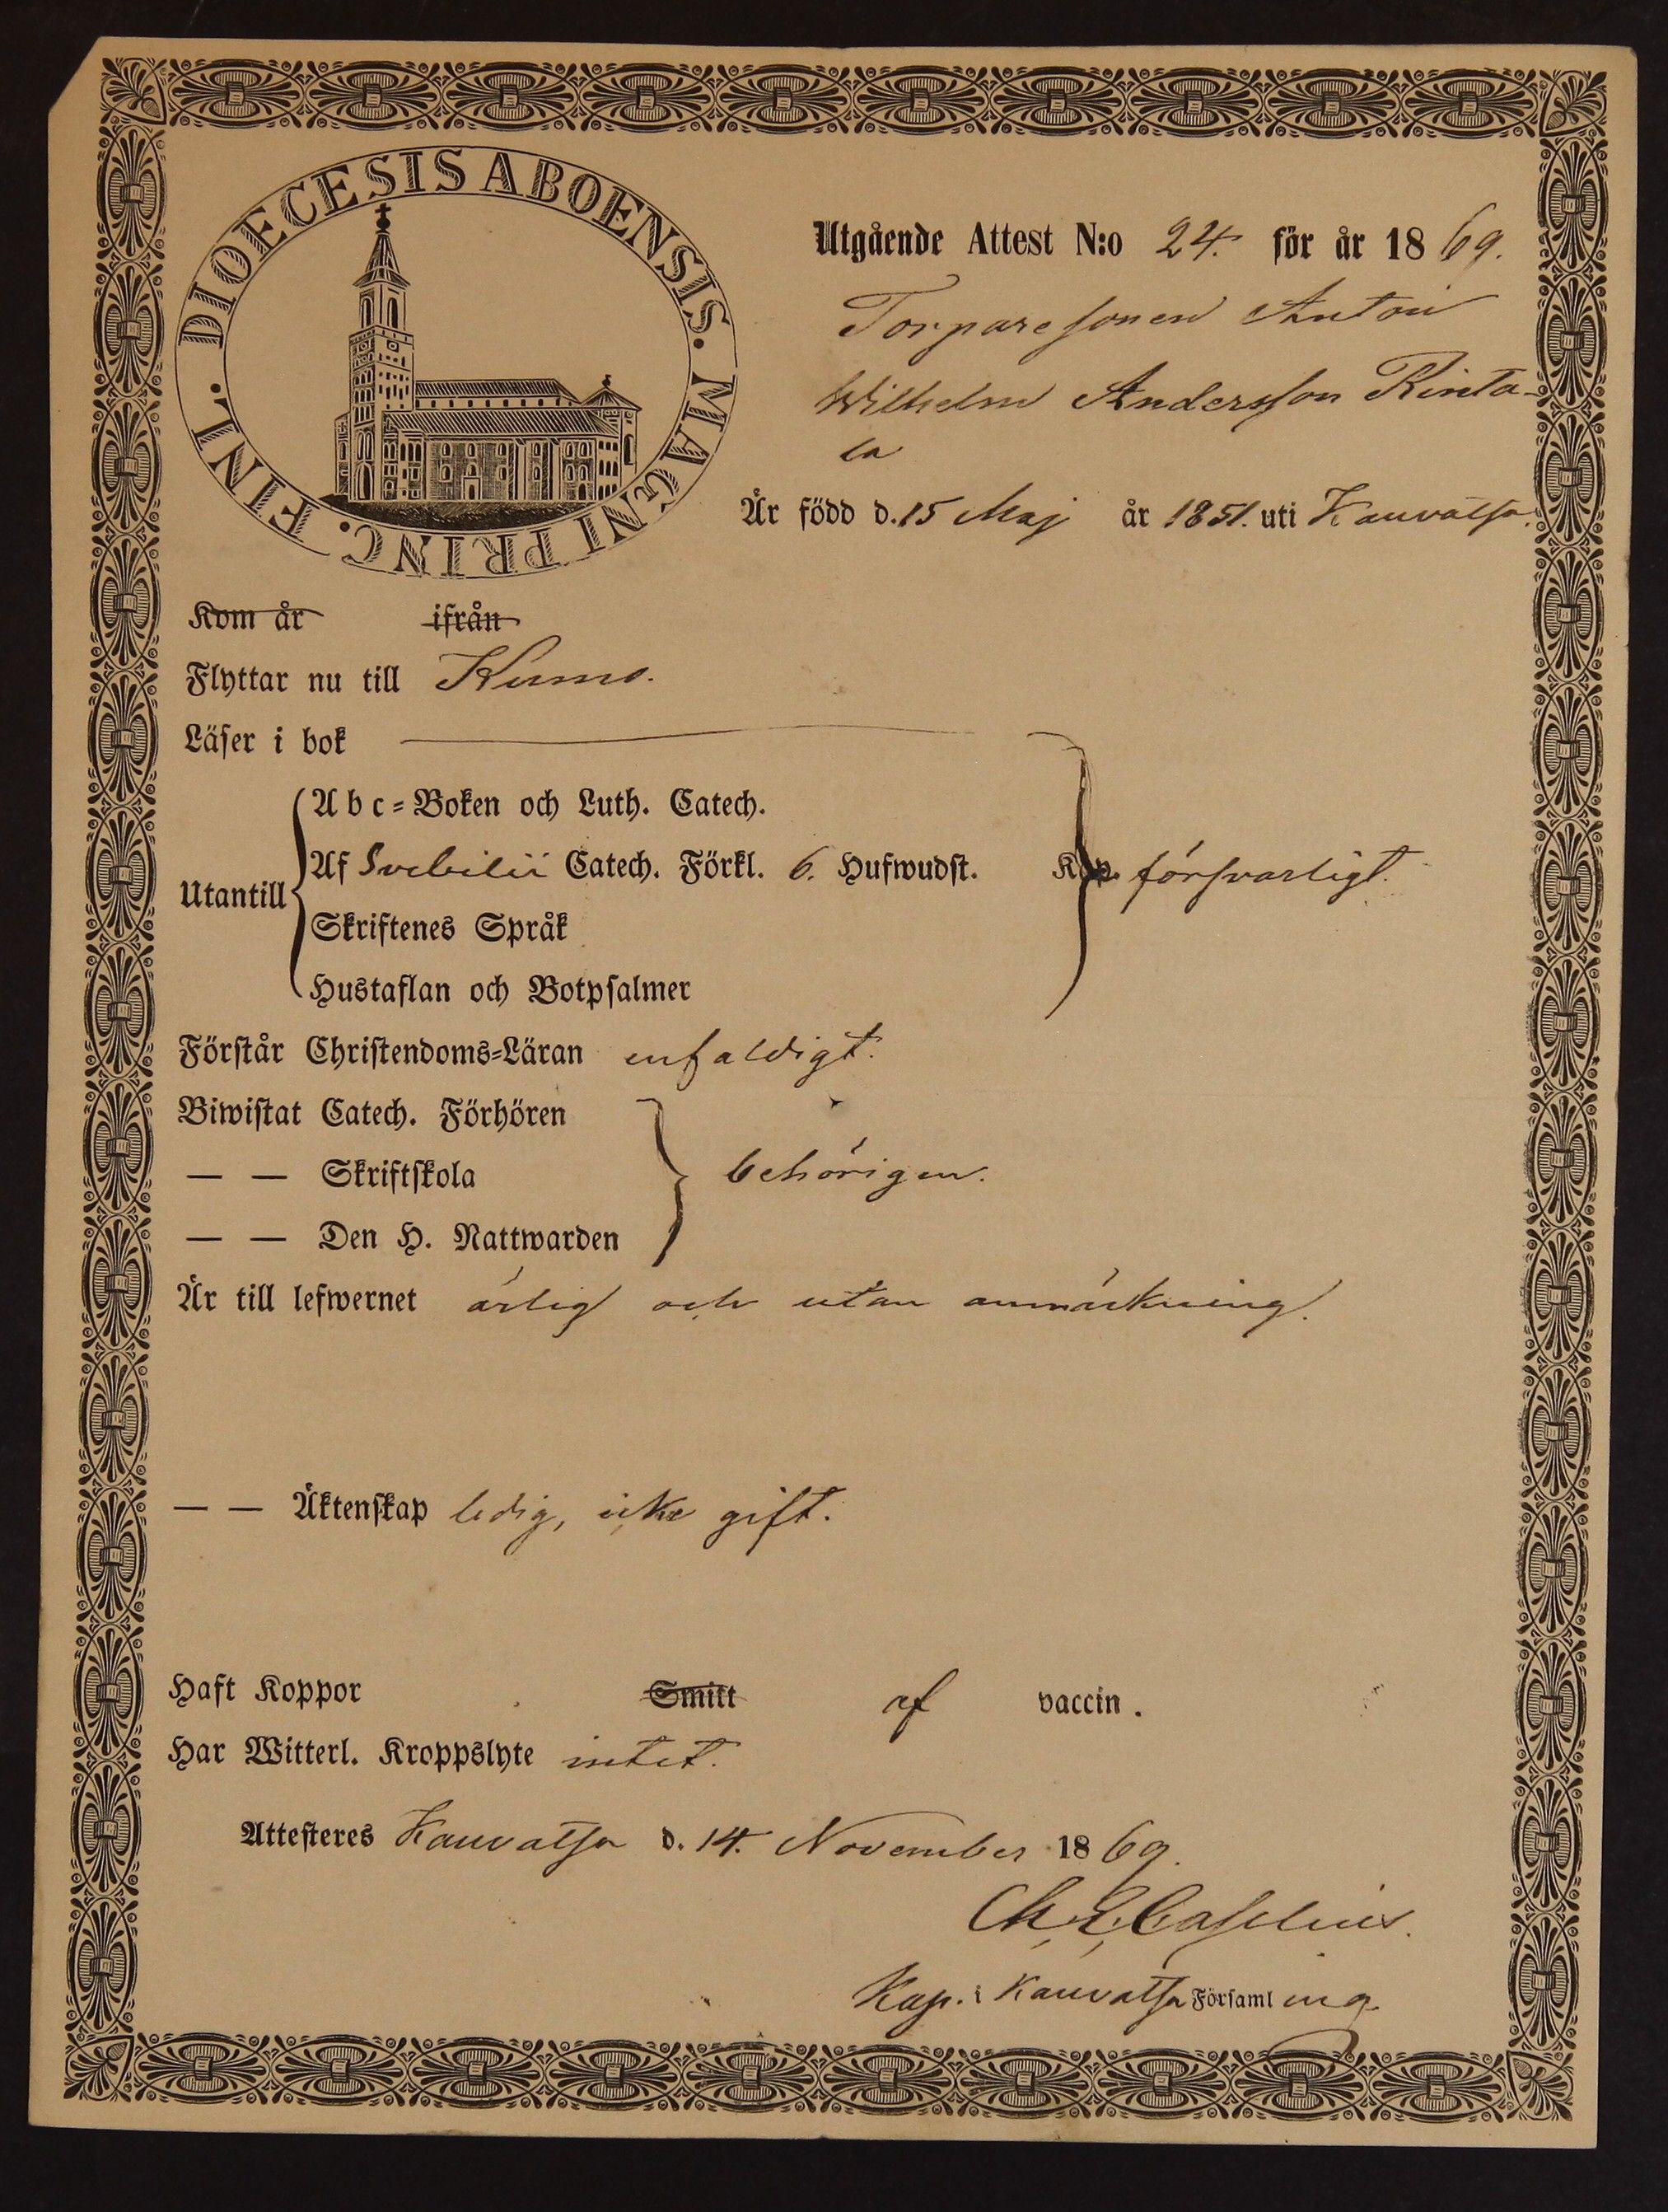 DIOECESIS ABOENSIS. MAGNI PRINC. FINL.
Utgående Attest N:o 24. för år 1869.
Torparesonen Anton
Wilhelm Andersson Rinta-
la
Är född d. 15 Maj år 1851. uti Kauvatsa.
Kom år ifrån
Flyttar nu till Kumo.
Läser i bok
Utantill
Abc-Boken och Luth. Catech.
Af Svebilii Catech. Förkl. 6. Hufwudst. Kap. försvarligt.
Skriftenes Språk
Hustaflan och Botpsalmer
Förstår Christendoms-Läran enfaldigt.
Biwistat Catech. Förhören
— — Skriftskola behörigen.
— — Den H. Nattwarden
Är till lefwernet ärlig och utan anmärkning.
— — Äktenskap ledig, icke gift.
Haft Koppor Smitt af vaccin.
Har Witterl. Kroppslyte intet.
Attesteres Kauvatsa d. 14. November 1869.
Kap. i Kauvatsa Församling